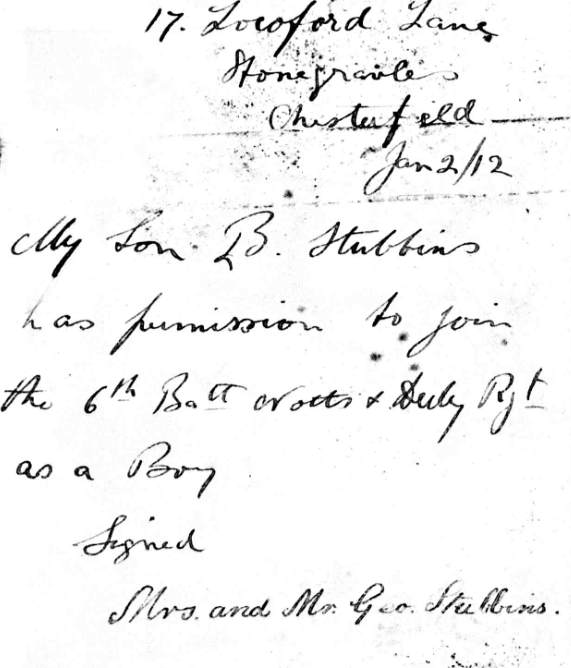 17. Locoford Lane
Stonegravles
Chesterfield
Jan 2/12
My Son B. Stubbins
has permission to join
the 6th Batt Notts & Derby Rgt
as a Boy
Signed
Mrs. and Mr. Geo. Stubbins.